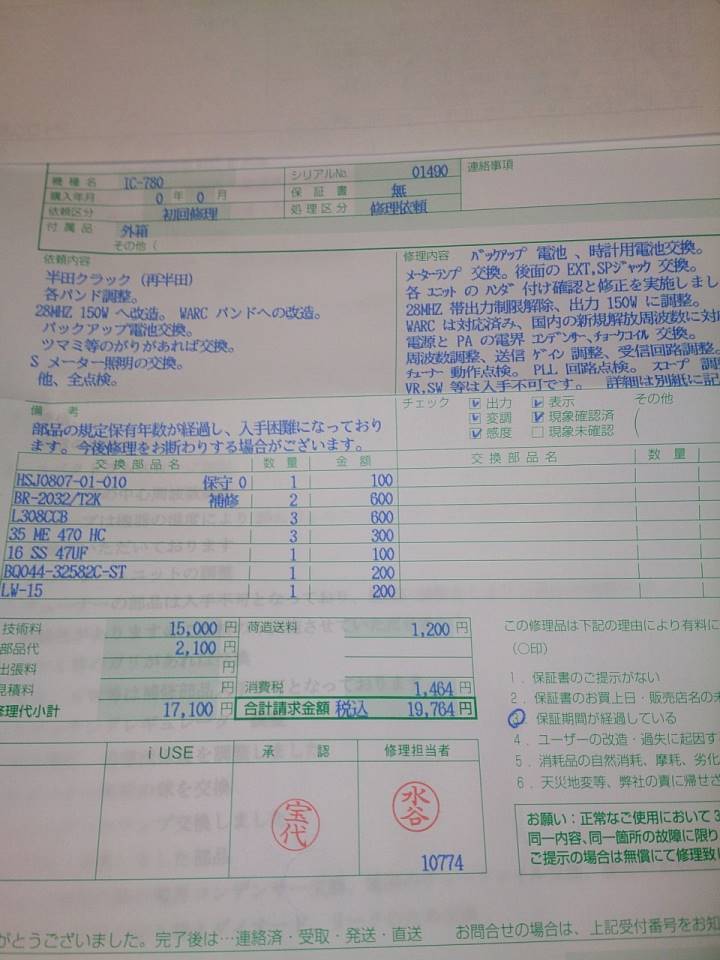 機種名 IC-780 シリアルNo. 01490 連絡事項
購入年月 0 年 0 月 保証書 無
依頼区分 初回修理 処理区分 修理依頼
付属品 外箱
その他(
依頼内容
半田クラック (再半田)
各バンド調整。
28MHZ 150W へ改造。 WARC バンドへの改造。
バックアップ電池交換。
ツマミ等のがりがあれば交換。
S メーター照明の交換。
他、全点検。
修理内容 バックアップ 電池 、時計用電池交換。
メーターランプ 交換。後面の EXT,SPジャック 交換。
各 ユニット の ハンダ 付け確認と修正を実施しまし
28MHZ 帯出力制限解除、出力 150W に調整。
WARC は対応済み、国内の新規解放周波数に対応
電源と PA の電界 コンデンサー,チョークコイル 交換。
周波数調整、送信 ゲイン 調整、受信回路調整。
チューナー 動作点検。 PLL 回路点検。 スコープ 調
VR,SW 等は入手不可です。 詳細は別紙に記
備考
部品の規定保有年数が経過し、入手困難になっており
ます。今後修理をお断わりする場合がございます。
チェック 出力 表示 その他
変調 現象確認済
感度 現象未確認
交換部品名 数量 金額 交換部品名 数量
HSJ0807-01-010 保守 0 1 100
BR-2032/T2K 補修 2 600
L308CCB 3 600
35 ME 470 HC 3 300
16 SS 47UF 1 100
BQ044-32582C-ST 1 200
LW-15 1 200
技術料 15,000 円 荷造送料 1,200 円
部品代 2,100 円
出張料 円
見積料 円 消費税 1,464 円
修理代小計 17,100 円 合計請求金額 税込 19,764 円
この修理品は下記の理由により有料に
(○印)
1. 保証書のご提示がない
2. 保証書のお買上日・販売店名の未
3. 保証期間が経過している
4. ユーザーの改造・過失に起因す
5. 消耗品の自然消耗、摩耗、劣化
6. 天災地変等、弊社の責に帰せざ
i USE 承認 修理担当者
宝代
水谷
10774
お願い:正常なご使用において3
同一内容、同一箇所の故障に限り
ご提示の場合は無償にて修理致し
がとうございました。完了後は…連絡済・受取・発送・直送 お問合せの場合は、上記受付番号をお知